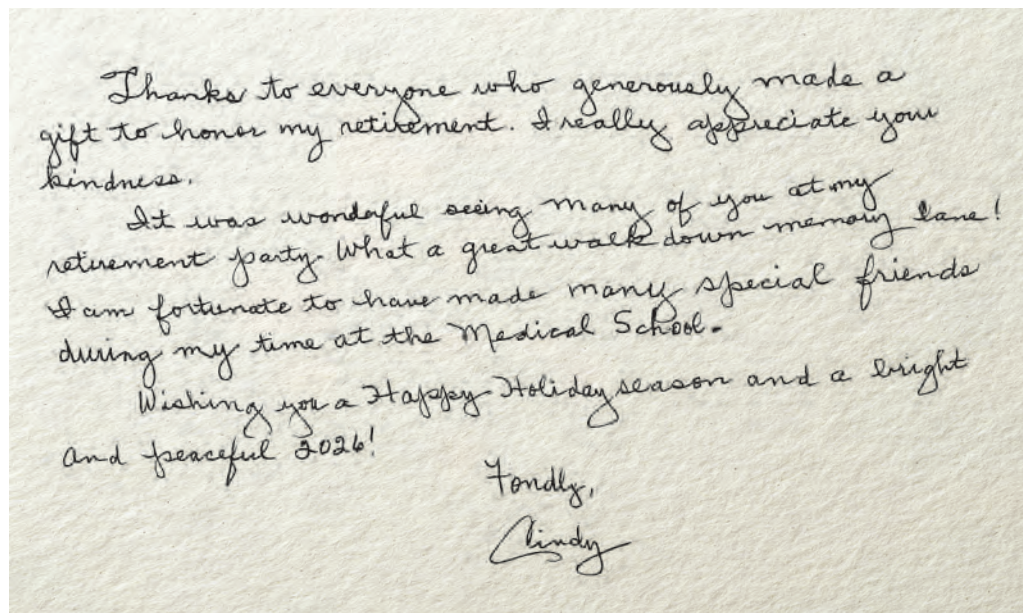 Thanks to everyone who generously made a
gift to honor my retirement. I really appreciate your
kindness.
It was wonderful seeing many of you at my
retirement party. What a great walk down memory lane!
I am fortunate to have made many special friends
during my time at the Medical School.
Wishing you a Happy Holiday season and a bright
and peaceful 2026!
Fondly,
Cindy